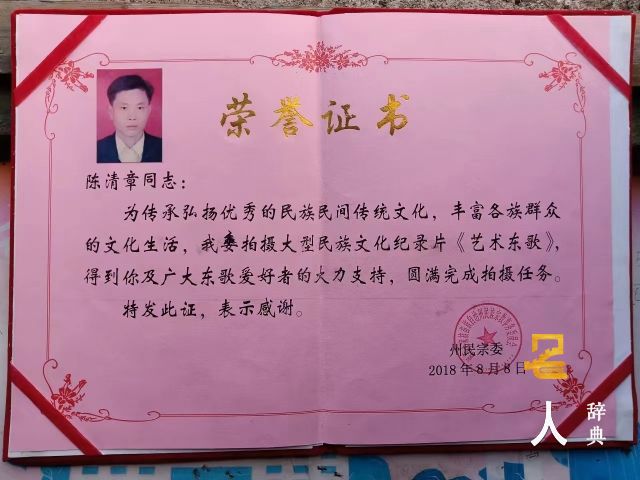 荣誉证书
陈清章同志：
为传承弘扬优秀的民族民间传统文化，丰富各族群众
的文化生活，我委拍摄大型民族文化纪录片《艺术东歌》，
得到你及广大东歌爱好者的大力支持，圆满完成拍摄任务。
特发此证，表示感谢。
州民宗委
2018年8月8日
名
人
辞典